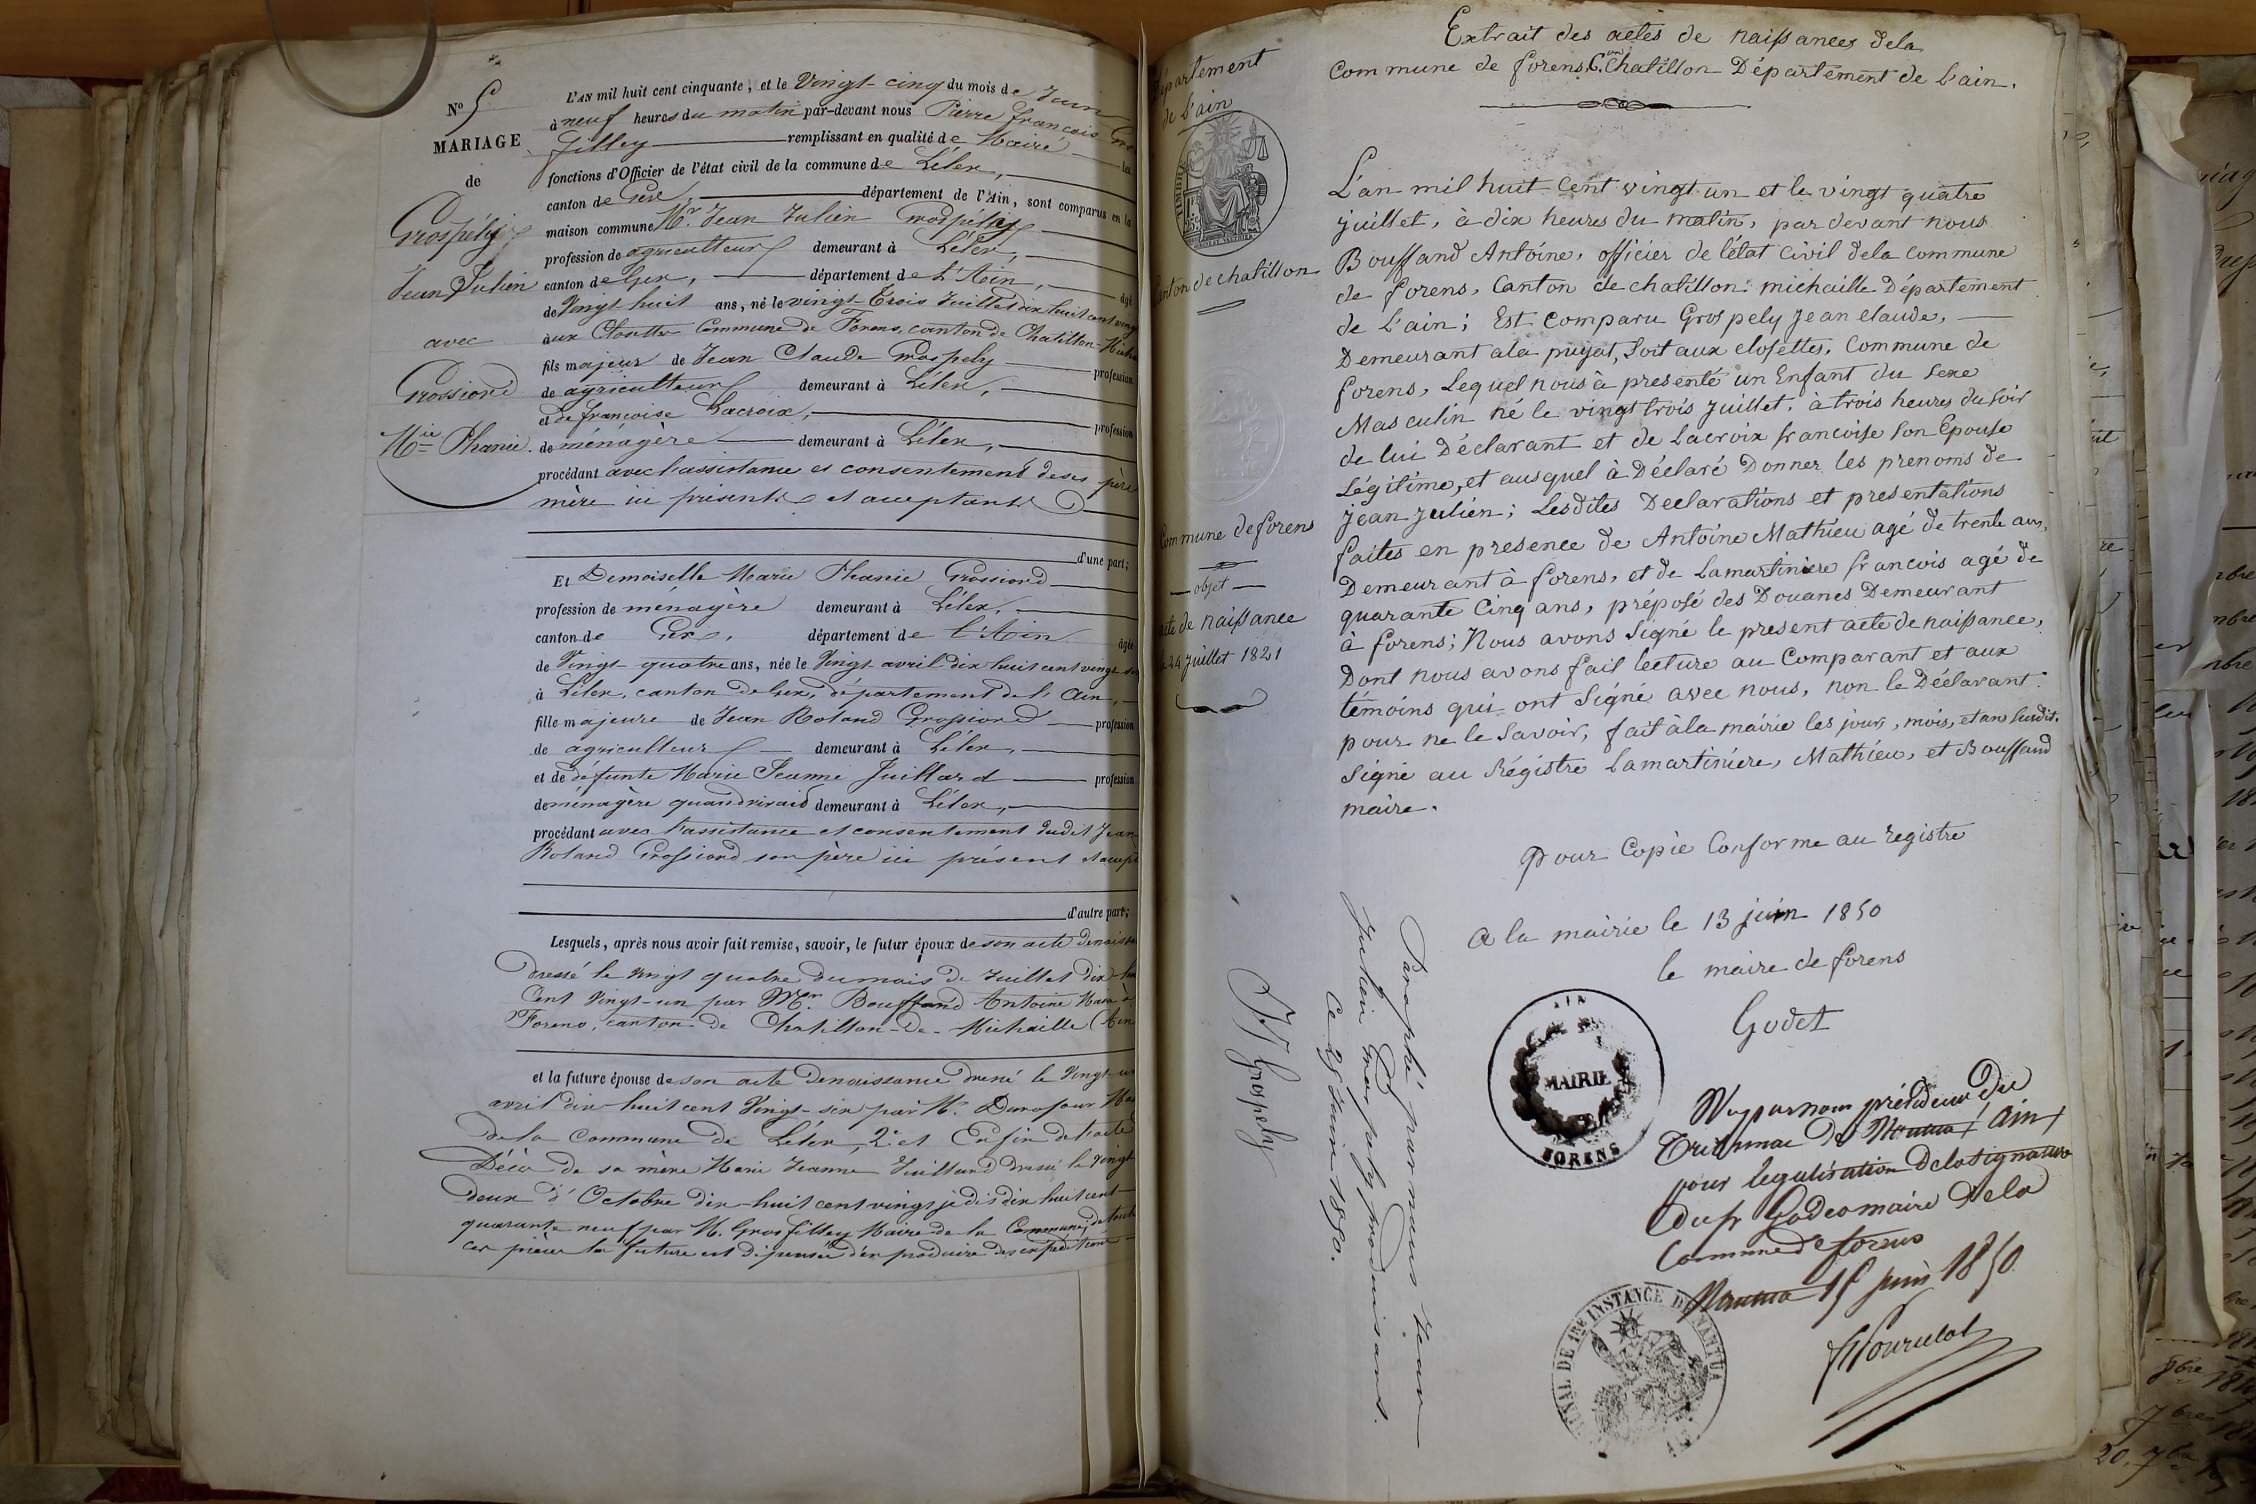 N° 5
MARIAGE
de
Grospély
Jean Julien
avec
Grossiord
Mie Phanie.
L'AN mil huit cent cinquante, et le Vingt-cinq du mois de Juin
à neuf heures du matin par-devant nous Pierre François Gros
filley remplissant en qualité de Maire les
fonctions d'Officier de l'état civil de la commune de Lélex,
canton de Gex, département de l'Ain, sont comparus en la
maison commune Mr. Jean Julien Grospély
profession de agriculteur demeurant à Lélex,
canton de Gex, département de L'Ain, âgé
de Vingt-huit ans, né le vingt-trois Juillet dix huit cent vingt
aux Commune de Forens, canton de Chatillon-
fils majeur de Jean Claude Grospely profession
de agriculteur demeurant à Lélex,
et de françoise Lacroix, profession
de ménagère demeurant à Lélex,
procédant avec l'assistance et consentement de ses père
mère ici présents et acceptants
d'une part;
Et Demoiselle Marie Phanie Grossiord
profession de ménagère demeurant à Lélex,
canton de Gex, département de l'Ain âgée
de Vingt-quatre ans, née le Vingt avril dix huit cent vingt six
à Lélex, canton de Gex, département de l'Ain,
fille majeure de Jean Roland Grossiord profession
de agriculteur demeurant à Lélex,
et de défunte Marie Jeanne Juillard profession
de ménagère quand vivait demeurant à Lélex,
procédant avec l'assistance et consentement dudit Jean
Roland Grossiord son père ici présent et accept
d'autre part;
Lesquels, après nous avoir fait remise, savoir, le futur époux de son acte de naissance
dressé le vingt quatre du mois de Juillet dix-huit
Cent Vingt-un par Mr. Bouffand Antoine Maire à
Forens, canton de Chatillon-de-Michaille (Ain
et la future épouse de son acte de naissance dressé le Vingt-un
avril dix-huit cent Vingt-six par M. Durafour Maire
de la Commune de Lélex, 2° et Enfin de l'acte
Décès de sa mère Marie Jeanne Juillard dressé le Vingt
deux d'Octobre dix-huit cent vingt je dis dix huit cent
quarante neuf par M. Grosfilley Maire de la Commune; de toutes
ces pièces la future est dispensée d'en produire des expéditions
Département
de l'ain
TIMBRE
Canton de chatillon
Commune de forens
objet
acte de naissance
24 juillet 1821
JJ Grospely
Extrait des actes de naissances de la
Commune de forens, Con. Chatillon Département de l'ain.
L'an mil huit cent vingt un et le vingt quatre
juillet, à dix heures du matin, par devant nous
Bouffand Antoine, officier de l'état civil dela commune
de forens, Canton de chatillon michaille Département
de L'ain; Est Comparu Grospely Jean claude,
Demeurant ala pujat, soit aux closettes, Commune de
forens, Lequel nous à presenté un Enfant du sexe
Masculin né le vingt trois juillet, à trois heures du soir
de lui Déclarant et de Lacroix francoise son Epouse
Légitime, et auquel à Déclaré Donner les prenoms de
jean julien; Lesdites Declarations et presentations
faites en presence de Antoine Mathieu agé de trente ans,
Demeurant à forens, et de Lamartiniere francois agé de
quarante Cinq ans, préposé des Douanes Demeurant
à forens; Nous avons signé le present acte de naissance,
Dont nous avons fait lecture au Comparant et aux
témoins qui ont signé avec nous, non le Déclarant
pour ne le savoir, fait àla mairie les jour, mois, et an susdit.
Signé au Régistre Lamartiniere, Mathieu, et Bouffand
maire.
pour Copie Conforme au registre
a la mairie le 13 juin 1850
le maire de forens
Godet
AIN
MAIRIE
FORENS
Vu par nous président du
Tribunal de Nantua (ain)
pour légalisation de la signature
du sr Godet maire de la
Commune de forens
Nantua 15 juin 1850
TRIBUNAL DE 1RE INSTANCE DE NANTUA
AIN
Paraphé par nous Jean
Julien Grospely produisant.
Ce 25 Juin 1850.